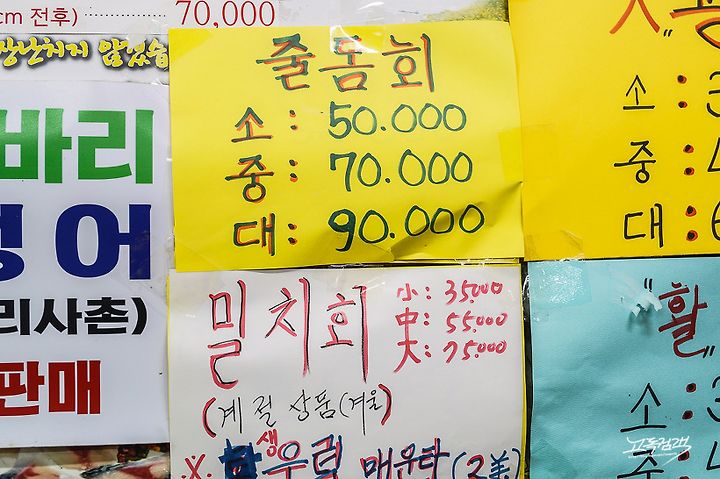 cm 전후) 70,000
장난치지 않았습
바리
어
리사촌)
판매
줄돔회
소: 50.000
중: 70.000
대: 90.000
밀치회
小: 35.000
中: 55.000
大: 75.000
(계절상품(겨울)
※. 생우럭 매운탕(고美)
소:
중:
대:
"활"
소:
중:
고독검객